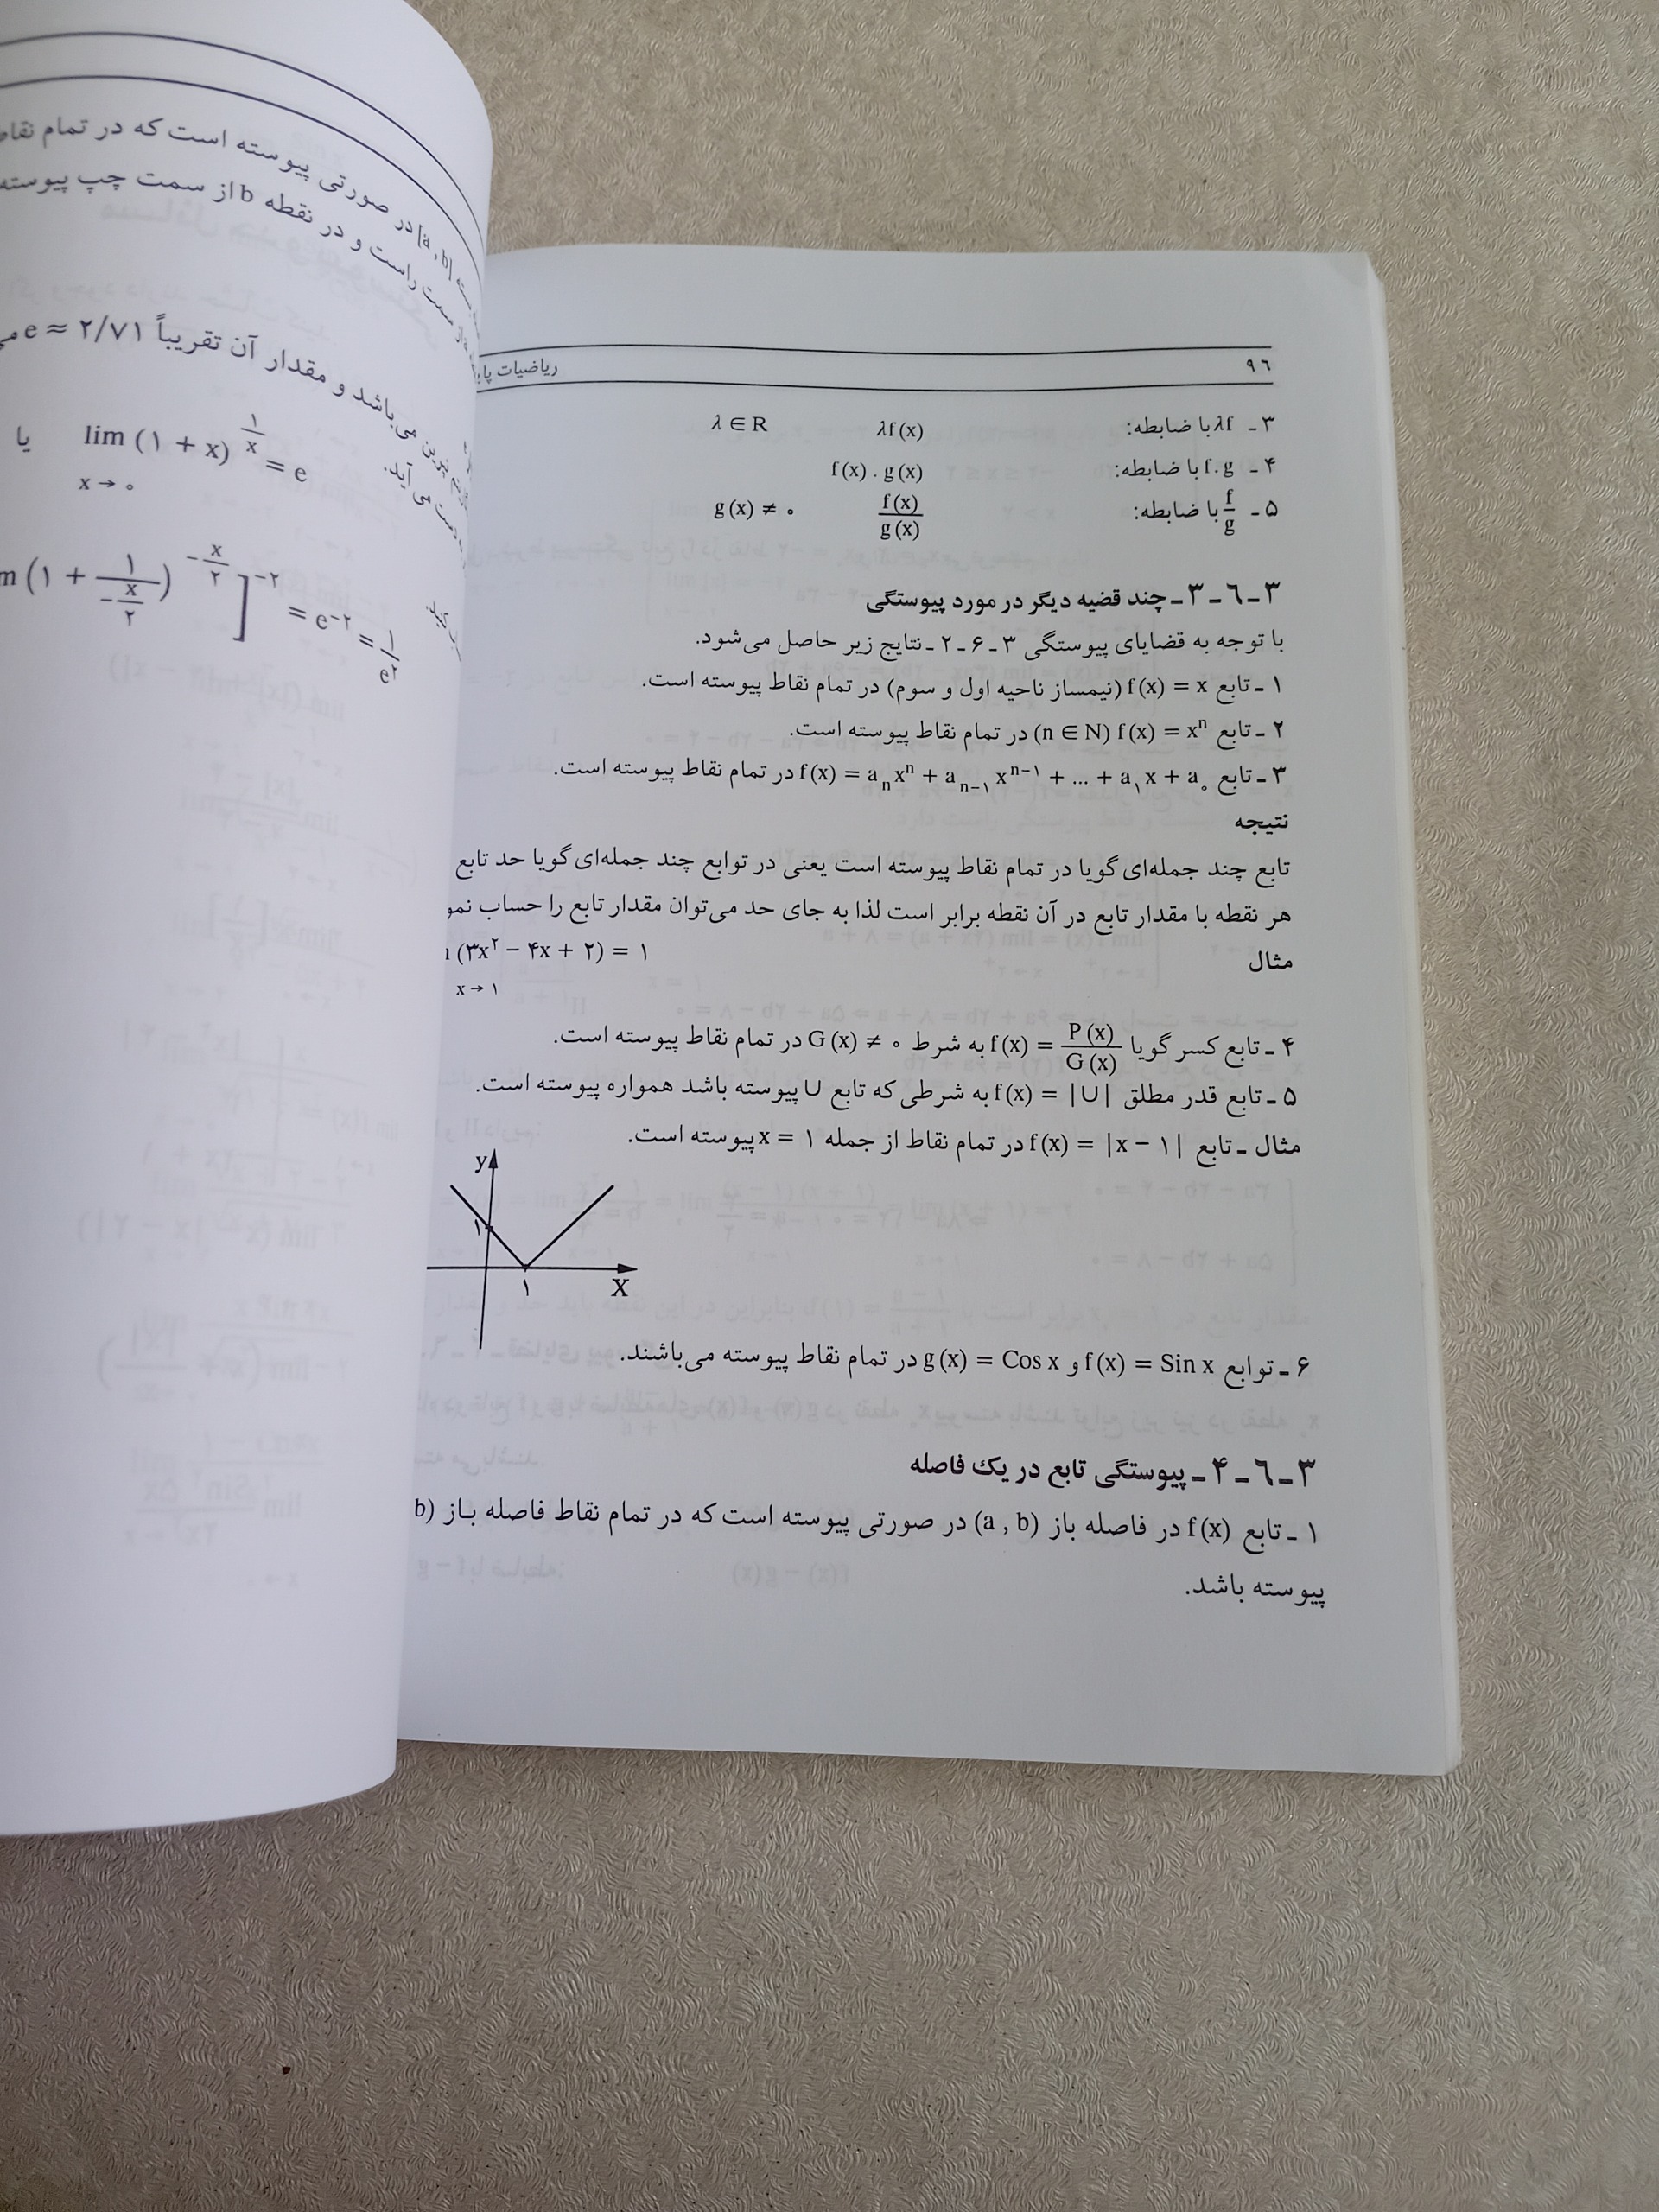 ۹٦
ریاضیات
۳ ـ λf با ضابطه: λf(x) λ ∈ R
۴ ـ f.g با ضابطه: f(x) . g(x)
۵ ـ f/g با ضابطه: f(x)/g(x) g(x) ≠ ۰
۳ـ٦ـ۳ـ چند قضیه دیگر در مورد پیوستگی
با توجه به قضایای پیوستگی ۳ ـ ۶ ـ ۲ ـ نتایج زیر حاصل می‌شود.
۱ ـ تابع f(x) = x (نیمساز ناحیه اول و سوم) در تمام نقاط پیوسته است.
۲ ـ تابع f(x) = xⁿ (n ∈ N) در تمام نقاط پیوسته است.
۳ ـ تابع f(x) = a_n x^n + a_{n-۱} x^{n-۱} + ... + a_۱ x + a_۰ در تمام نقاط پیوسته است.
نتیجه
تابع چند جمله‌ای گویا در تمام نقاط پیوسته است یعنی در توابع چند جمله‌ای گویا حد تابع
هر نقطه با مقدار تابع در آن نقطه برابر است لذا به جای حد می‌توان مقدار تابع را حساب
مثال (۳x^۲ − ۴x + ۲) = ۱
x → ۱
۴ ـ تابع کسر گویا f(x) = P(x)/G(x) به شرط G(x) ≠ ۰ در تمام نقاط پیوسته است.
۵ ـ تابع قدر مطلق f(x) = |U| به شرطی که تابع U پیوسته باشد همواره پیوسته است.
مثال ـ تابع f(x) = |x − ۱| در تمام نقاط از جمله x = ۱ پیوسته است.
y
۱
۱
X
۶ ـ توابع f(x) = Sin x و g(x) = Cos x در تمام نقاط پیوسته می‌باشند.
۳ـ٦ـ۴ـ پیوستگی تابع در یک فاصله
۱ ـ تابع f(x) در فاصله باز (a , b) در صورتی پیوسته است که در تمام نقاط فاصله بـاز b)
پیوسته باشد.
[a , b] در صورتی پیوسته است که در تمام
سمت راست و در نقطه b از سمت چپ پیوسته
می‌باشد و مقدار آن تقریباً e ≈ ۲/۷۱
می‌آید.
یا lim (۱ + x)^{۱/x} = e
x → ۰
(۱ + ۱/(−x/۲))^{−x/۲}]^{−۲} = e^{−۲} = ۱/e^۲